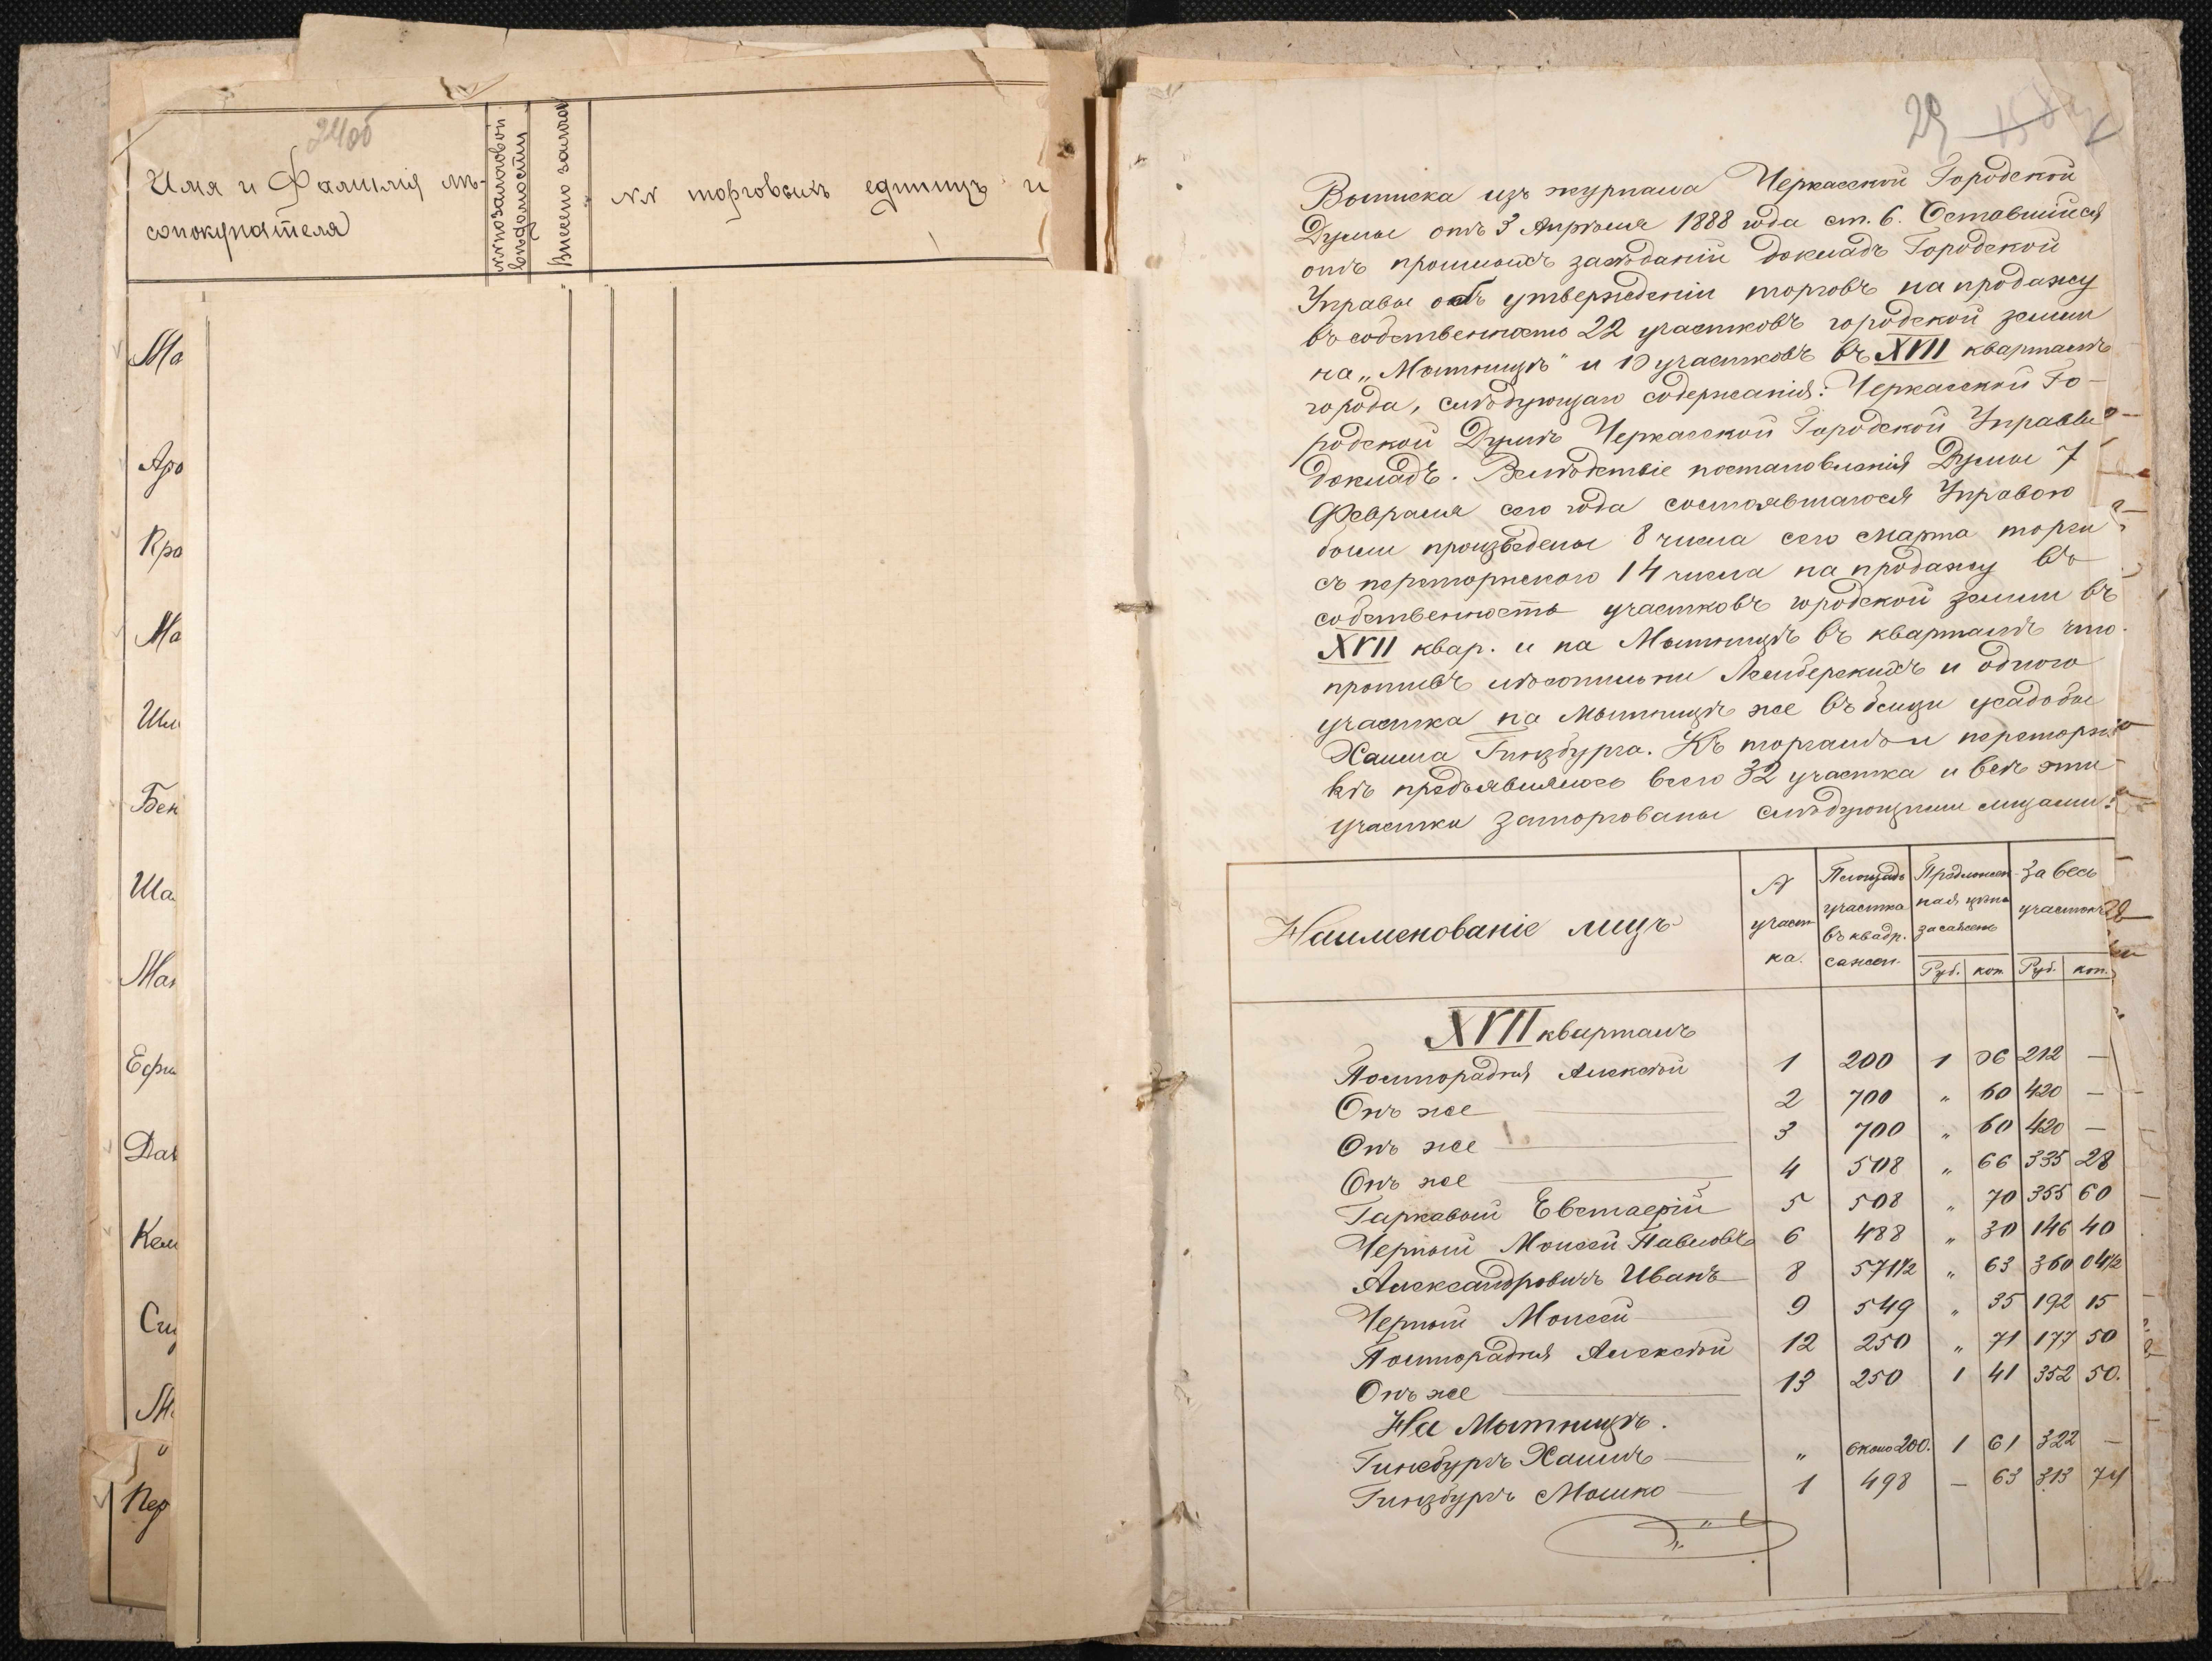 24об
Имя и Фамилія лѣ-
сопокупателя
№№ по залоговой
вѣдомости
Внесено залога
№№ торговыхъ единицъ и
Ма
Аро
Кра
Ма
Шл
Бен
Ша
Ман
Ефи
Дав
Кел
Сиг
М
Пер
29
Выписка изъ журнала Черкасской Городской
Думы отъ 3 Апрѣля 1888 года ст. 6. Оставшійся
отъ прошлыхъ засѣданій докладъ Городской
Управы объ утвержденіи торговъ на продажу
въ собственность 22 участковъ городской земли
на „Мытницѣ" и 10 участковъ въ XVII кварталѣ
города, слѣдующаго содержанія: Черкасской Го-
родской Думѣ Черкасской Городской Управы
докладъ. Вслѣдствіе постановленія Думы 7
Февраля сего года состоявшагося Управою
были произведены 8 числа сего Марта торги
съ переторжкою 14 числа на продажу въ
собственность участковъ городской земли въ
XVII квар. и на Мытницѣ въ кварталѣ что
противъ лѣсопильни Лемберскихъ и одного
участка на Мытницѣ же вблизи усадьбы
Хаима Гинзбурга. Къ торгамъ и переторж
кѣ предъявлялось всего 32 участка и всѣ эти
участки заторгованы слѣдующими лицами:
Наименованіе лицъ | № участ ка. | Площадь участка въ квадр. сажен. | Предложен ная цѣна за сажень | За весь участокъ
Руб. | коп | Руб. | коп.
XVII кварталъ
Полторадня Алексѣй 1 200 1 06 212 —
Онъ же 2 700 „ 60 420 —
Онъ же 3 700 „ 60 420 —
Онъ же 4 508 „ 66 335 28
Гаркавый Евстафій 5 508 „ 70 355 60
Черный Моисей Павловъ 6 488 „ 30 146 40
Александровичъ Иванъ 8 571½ „ 63 360 04½
Черный Моисей 9 549 „ 35 192 15
Полторадня Алексѣй 12 250 „ 71 177 50
Онъ же 13 250 1 41 352 50.
На Мытницѣ.
Гинсбургъ Хаимъ „ около 200. 1 61 322 —
Гинзбургъ Мошко 1 498 — 63 313 74